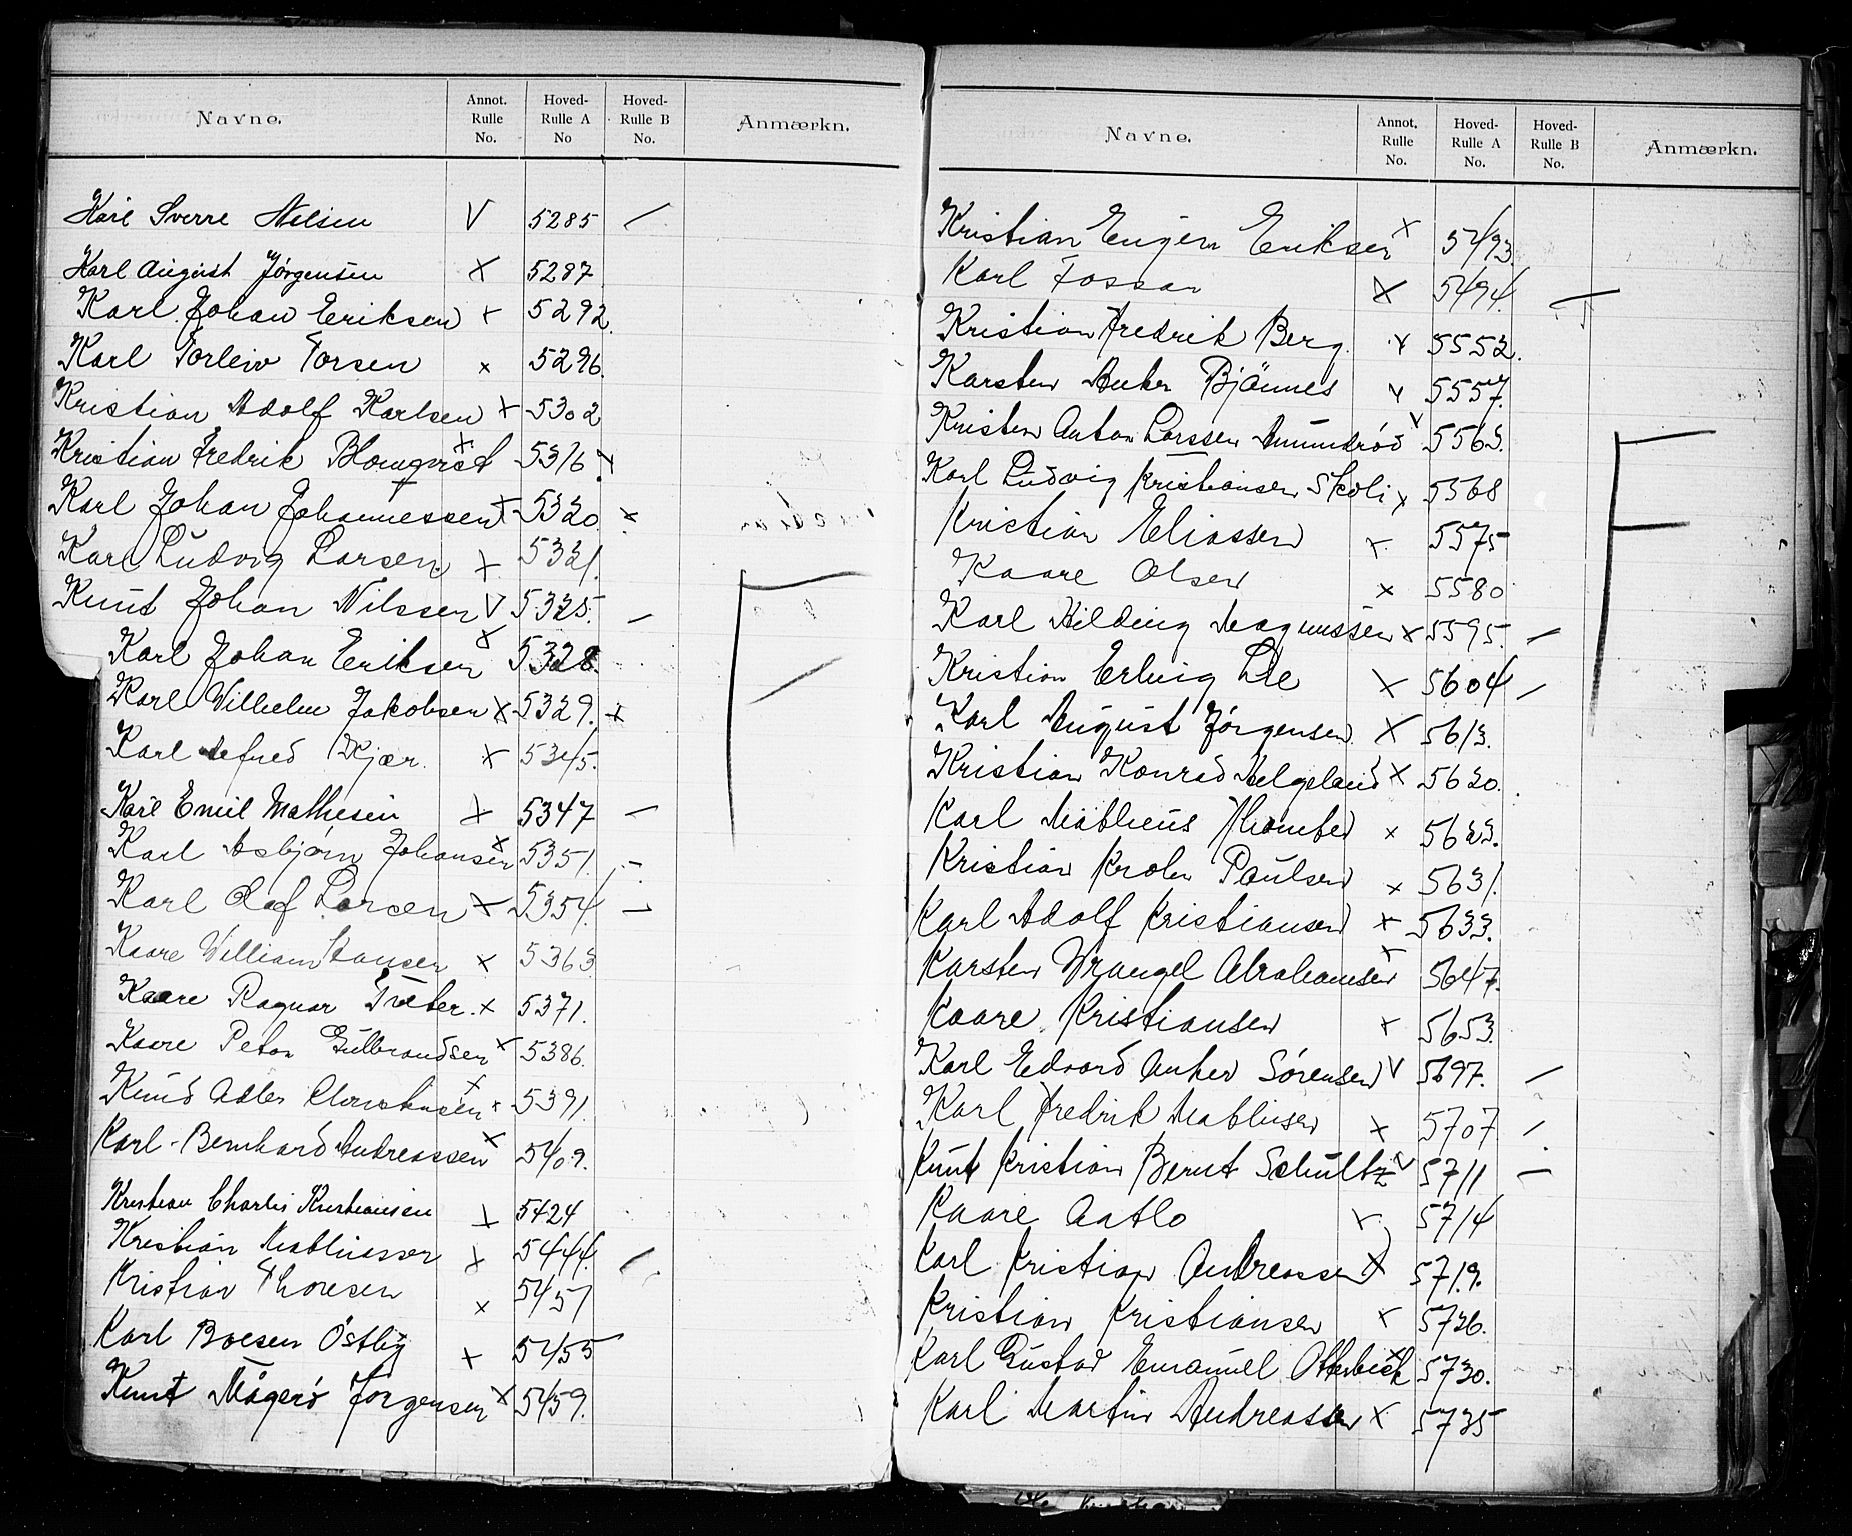 Navne. Annot. Rulle No. Hoved-Rulle A No Hoved-Rulle B No. Anmærkn.
Karl Sverre Nilsen V 5285 —
Karl August Jørgensen X 5287
Karl Johan Eriksen x 5292.
Karl Torleiv Torsen x 5296.
Kristian Adolf Karlsen x 5302
Kristian Fredrik Blomqvist x 5316 x
Karl Johan Johannessen x 5320 x
Karl Ludvig Larsen x 5321.
Knut Johan Nilssen V 5325. —
Karl Johan Eriksen x 5328.
Karl Vilhelm Jakobsen x 5329. x
Karl Alfred Kjær. x 5345.
Karl Emil Mathesen x 5347 —
Karl Asbjørn Johansen x 5351. —
Karl Olaf Larsen x 5354. —
Kaare William Hansen x 5363
Kaare Ragnar Tveter. x 5371.
Kaare Peton Gulbrandsen x 5386.
Knud Adler Christensen x 5391.
Karl-Bernhard Andreassen x 5409.
Kristian Charles Kristiansen x 5424
Kristian Mathiassen x 5444. —
Kristian Thoresen x 5451
Karl Boesen Østby x 5455
Knut Mågerø Jørgensen x 5459.
Navne. Annot. Rulle No. Hoved-Rulle A No. Hoved-Rulle B No. Anmærkn.
Kristian Eugen Eriksen x 5493.
Karl Fossan x 5494. —
Kristian Fredrik Berg. x 5552.
Karsten Anker Bjønnes x 5557.
Kristen Anton Larssen Amundrød V 5563.
Karl Ludvig Kristiansen Skoli x 5568
Kristian Eliassen x 5575
Kaare Olsen x 5580
Karl Hilding Magnussen x 5595. —
Kristian Erling Lie x 5604 —
Karl August Jørgensen x 5613.
Kristian Konrad Helgeland x 5620.
Karl Matheus x 5623.
Kristian Krohn Paulsen x 5631.
Karl Adolf Kristiansen x 5633.
Karsten Wrangel Abrahamsen x 5647.
Kaare Kristiansen x 5653.
Karl Edvard Anker Sørensen V 5697. —
Karl Fredrik Mathisen x 5707 —
Knut Kristian Bernt Schultz V 5711 —
Kaare Aatlo x 5714
Karl Kristian Andreassen x 5719.
Kristian Kristiansen x 5726.
Karl Gustav Emanuel Otterbeck x 5730.
Karl Martin Andreassen x 5735